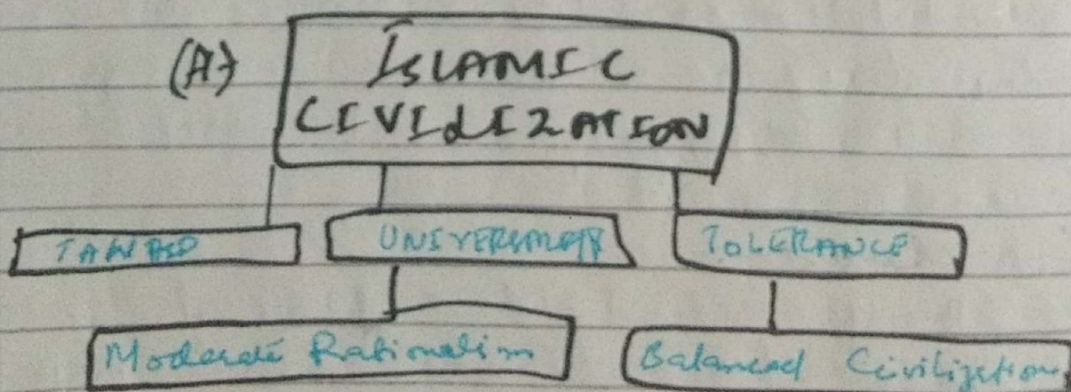 (A) ISLAMIC
CIVILIZATION
TAWHID UNIVERSALITY TOLERANCE
Moderate Rationalism Balanced Civilization